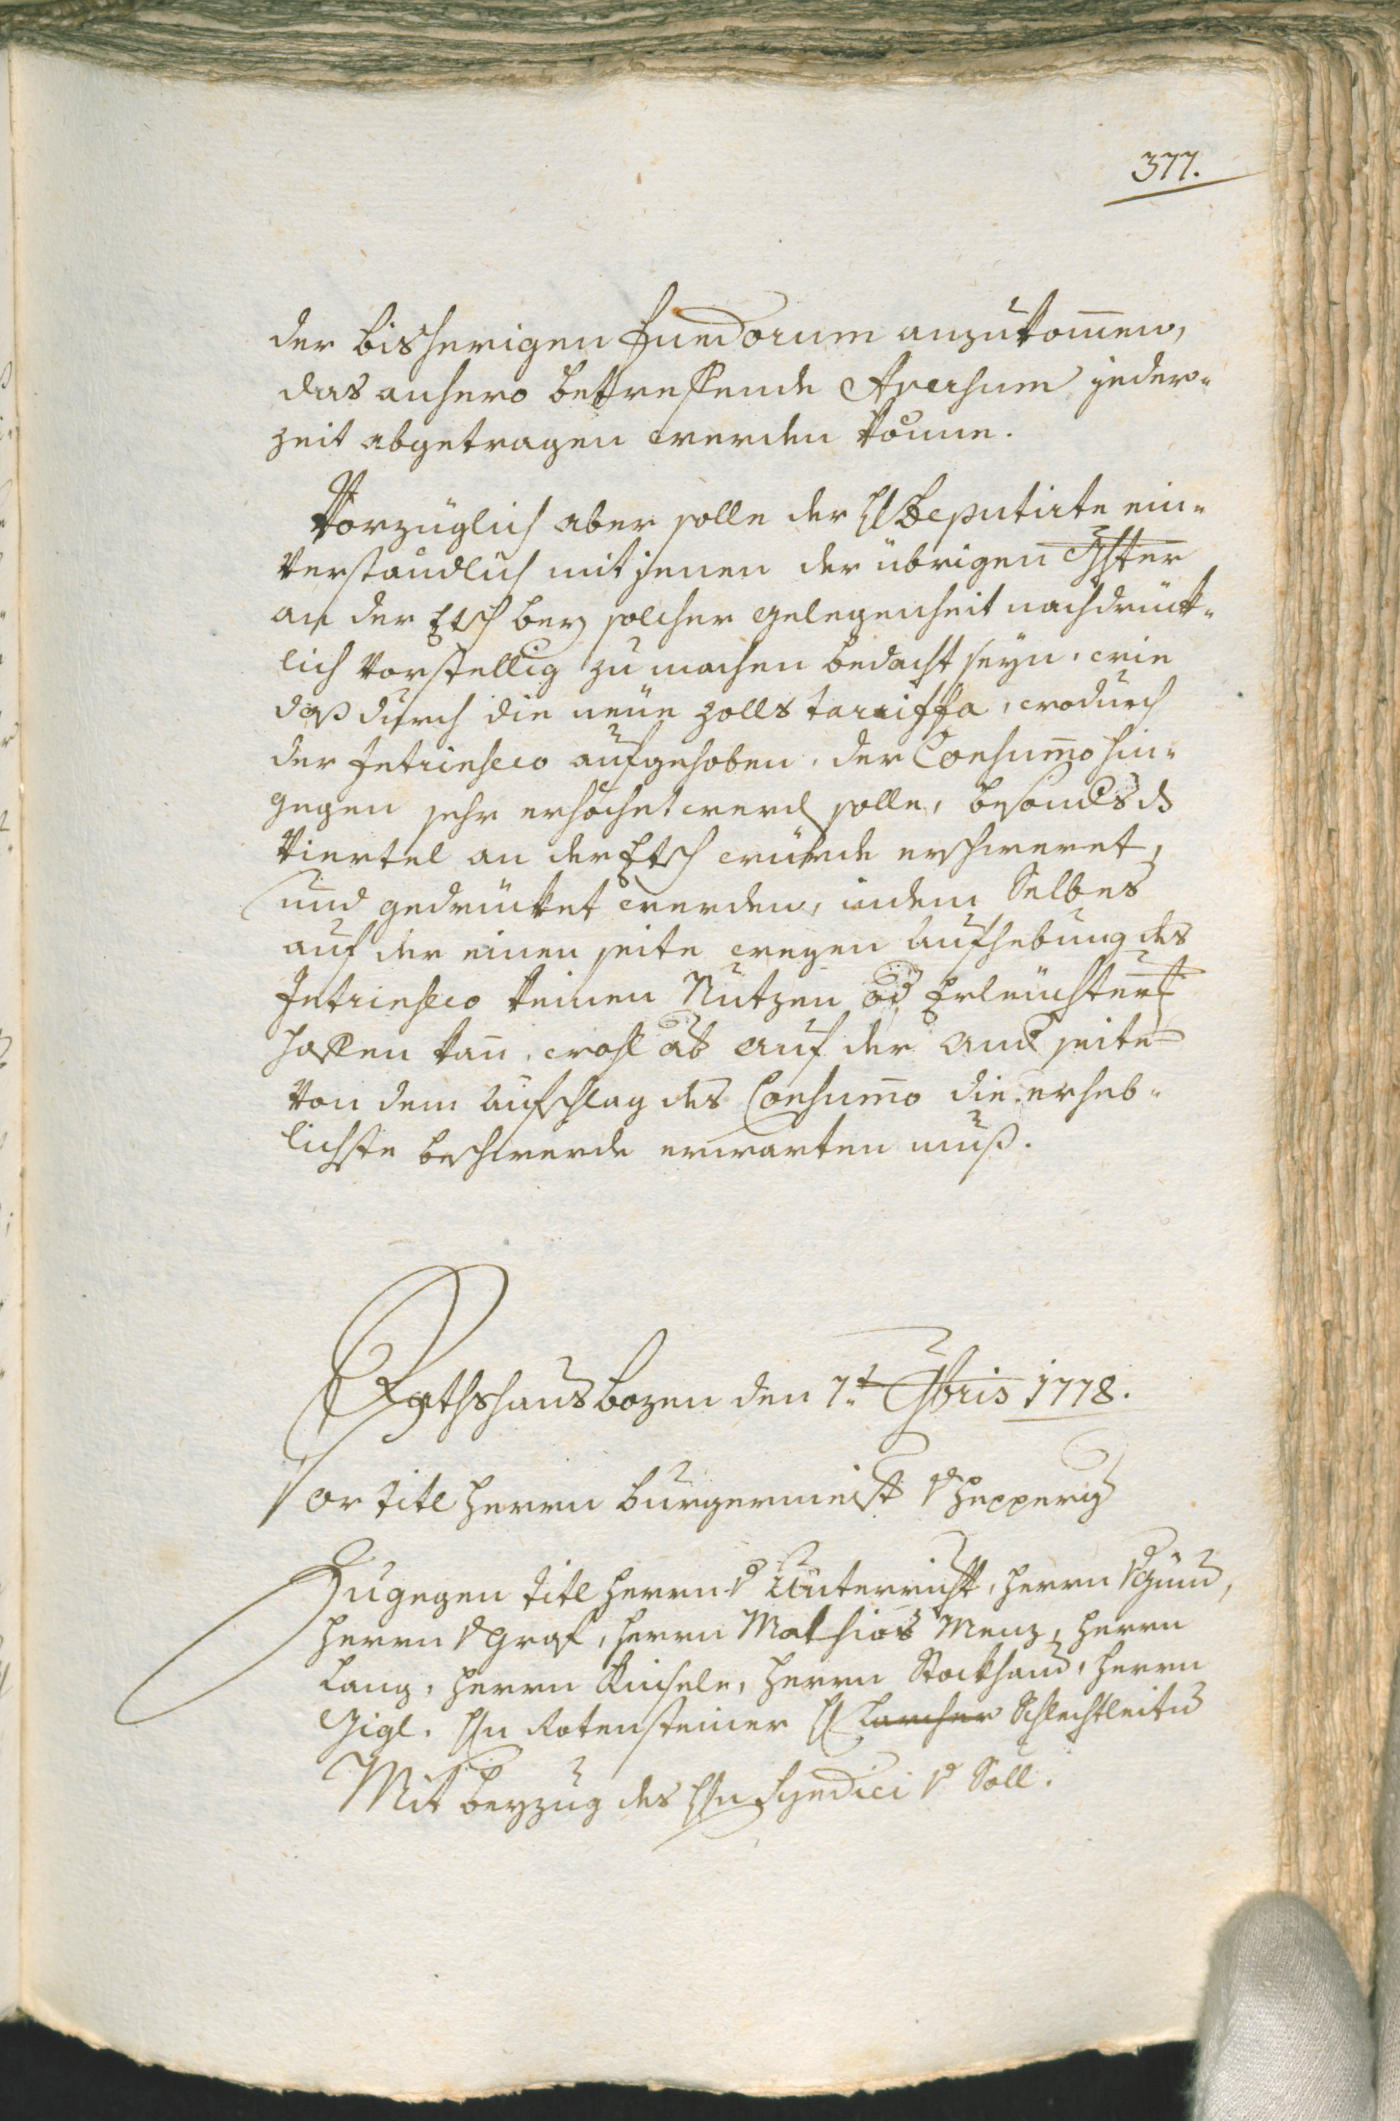 377.
der bisherigen Fundorum anzukom̄en,
das anhero betreffende Aversum jeder-
zeit abgetragen werden könne.
Vorzüglich aber solle der H Deputirte ein-
verständlich mit jenen der übrigen
an der Etsch bey solcher gelegenheit nachdrück-
lich vorstellig zu machen bedacht seyn, wie
daß durch die neüe Zolls tariffa, wodurch
der Intrinseco aufgehoben, der Consum̄o hin-
gegen sehr erhöchet werd solle, besonders ds
Viertel an der Etsch würde erschweret,
und gedrücket werden, indem Selbes
auf der einen seite wegen Aufhebung des
Intrinseco keinen Nutzen od Erleüchter
hoffen kan̄, wohl ab auf der and seite
von dem Aufschlag des Consum̄o die erheb-
lichste beschwerde erwarten muß.
Rathshaus Bozen den 7.t 9bris 1778.
Vor titl Herrn Burgermeist v Hepperg
Zugegen titl Herrn v Unterricht, Herrn v Gum,
Herrn v Graf, Herrn Mathias Menz, Herrn
Lang, Herrn Kinsele, Herrn Stockham, Herrn
Gigl. Hn Rotensteiner H Larcher Schlechtleitn
Mit beyzug des Hn Syndici v Söll.